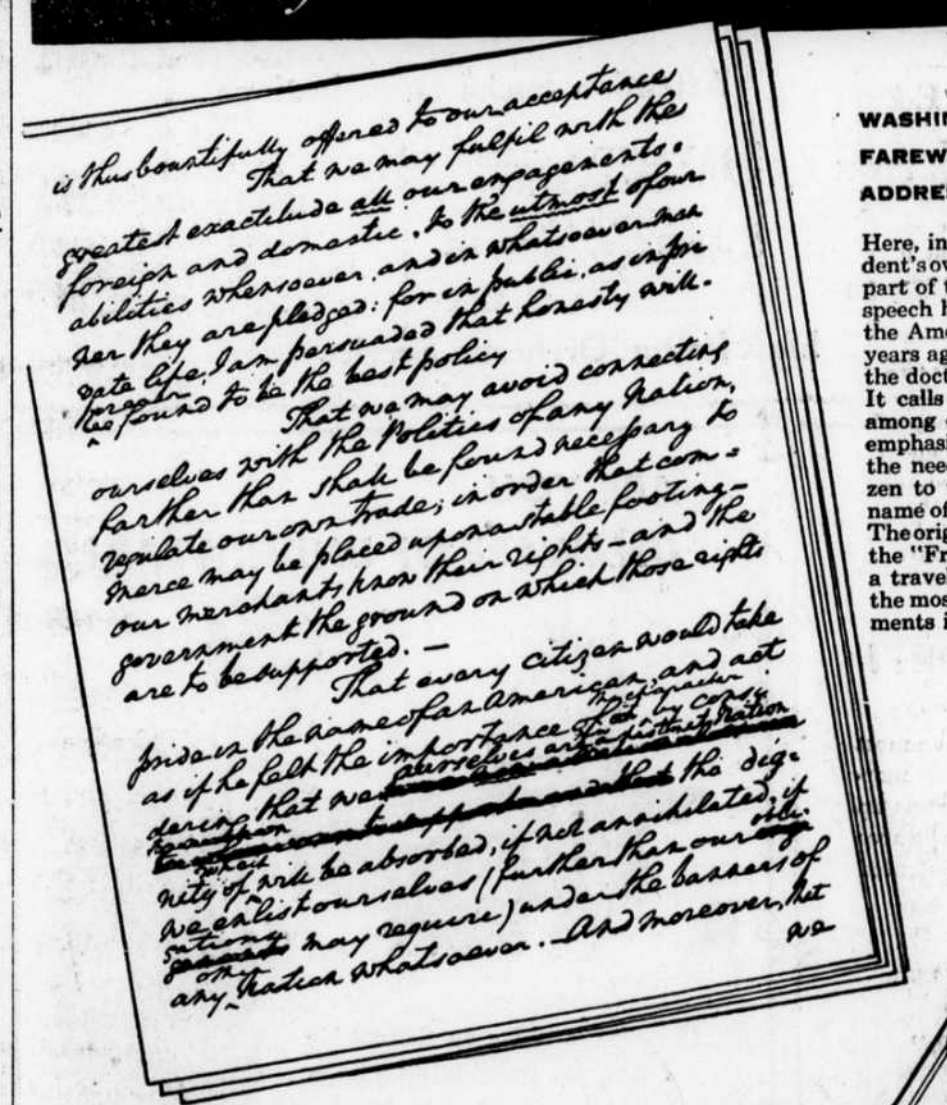 is thus bountifully offered to our acceptance
That we may fulfil with the
greatest exactitude all our engagements,
foreign and domestic, to the utmost of our
abilities whensoever, and in whatsoever man
ner they are pledged: for in public, as in pri
vate life, I am persuaded that honesty will
ever
be found to be the best policy
That we may avoid connecting
ourselves with the Politics of any Nation,
farther than shall be found necessary to
regulate our own trade; in order that com=
merce may be placed upon a stable footing—
our merchants know their rights—and the
government the ground on which those rights
are to be supported. —
That every citizen would take
pride in the name of an American, and act
as if he felt the importance of the character
by consi-
dering that we ourselves are a distinct Nation
the dig=
nity of which will be absorbed, if not annihilated, if
we enlist ourselves (further than our obli-
gations may require) under the banners of
any Nation whatsoever. — And moreover, that
we
WASHIN
FAREW
ADDRE
Here, in
dent's ov
part of t
speech h
the Ame
years ag
the doct
It calls
among
emphas
the nee
zen to
name of
The orig
the "Fr
a trave
the mos
ments i